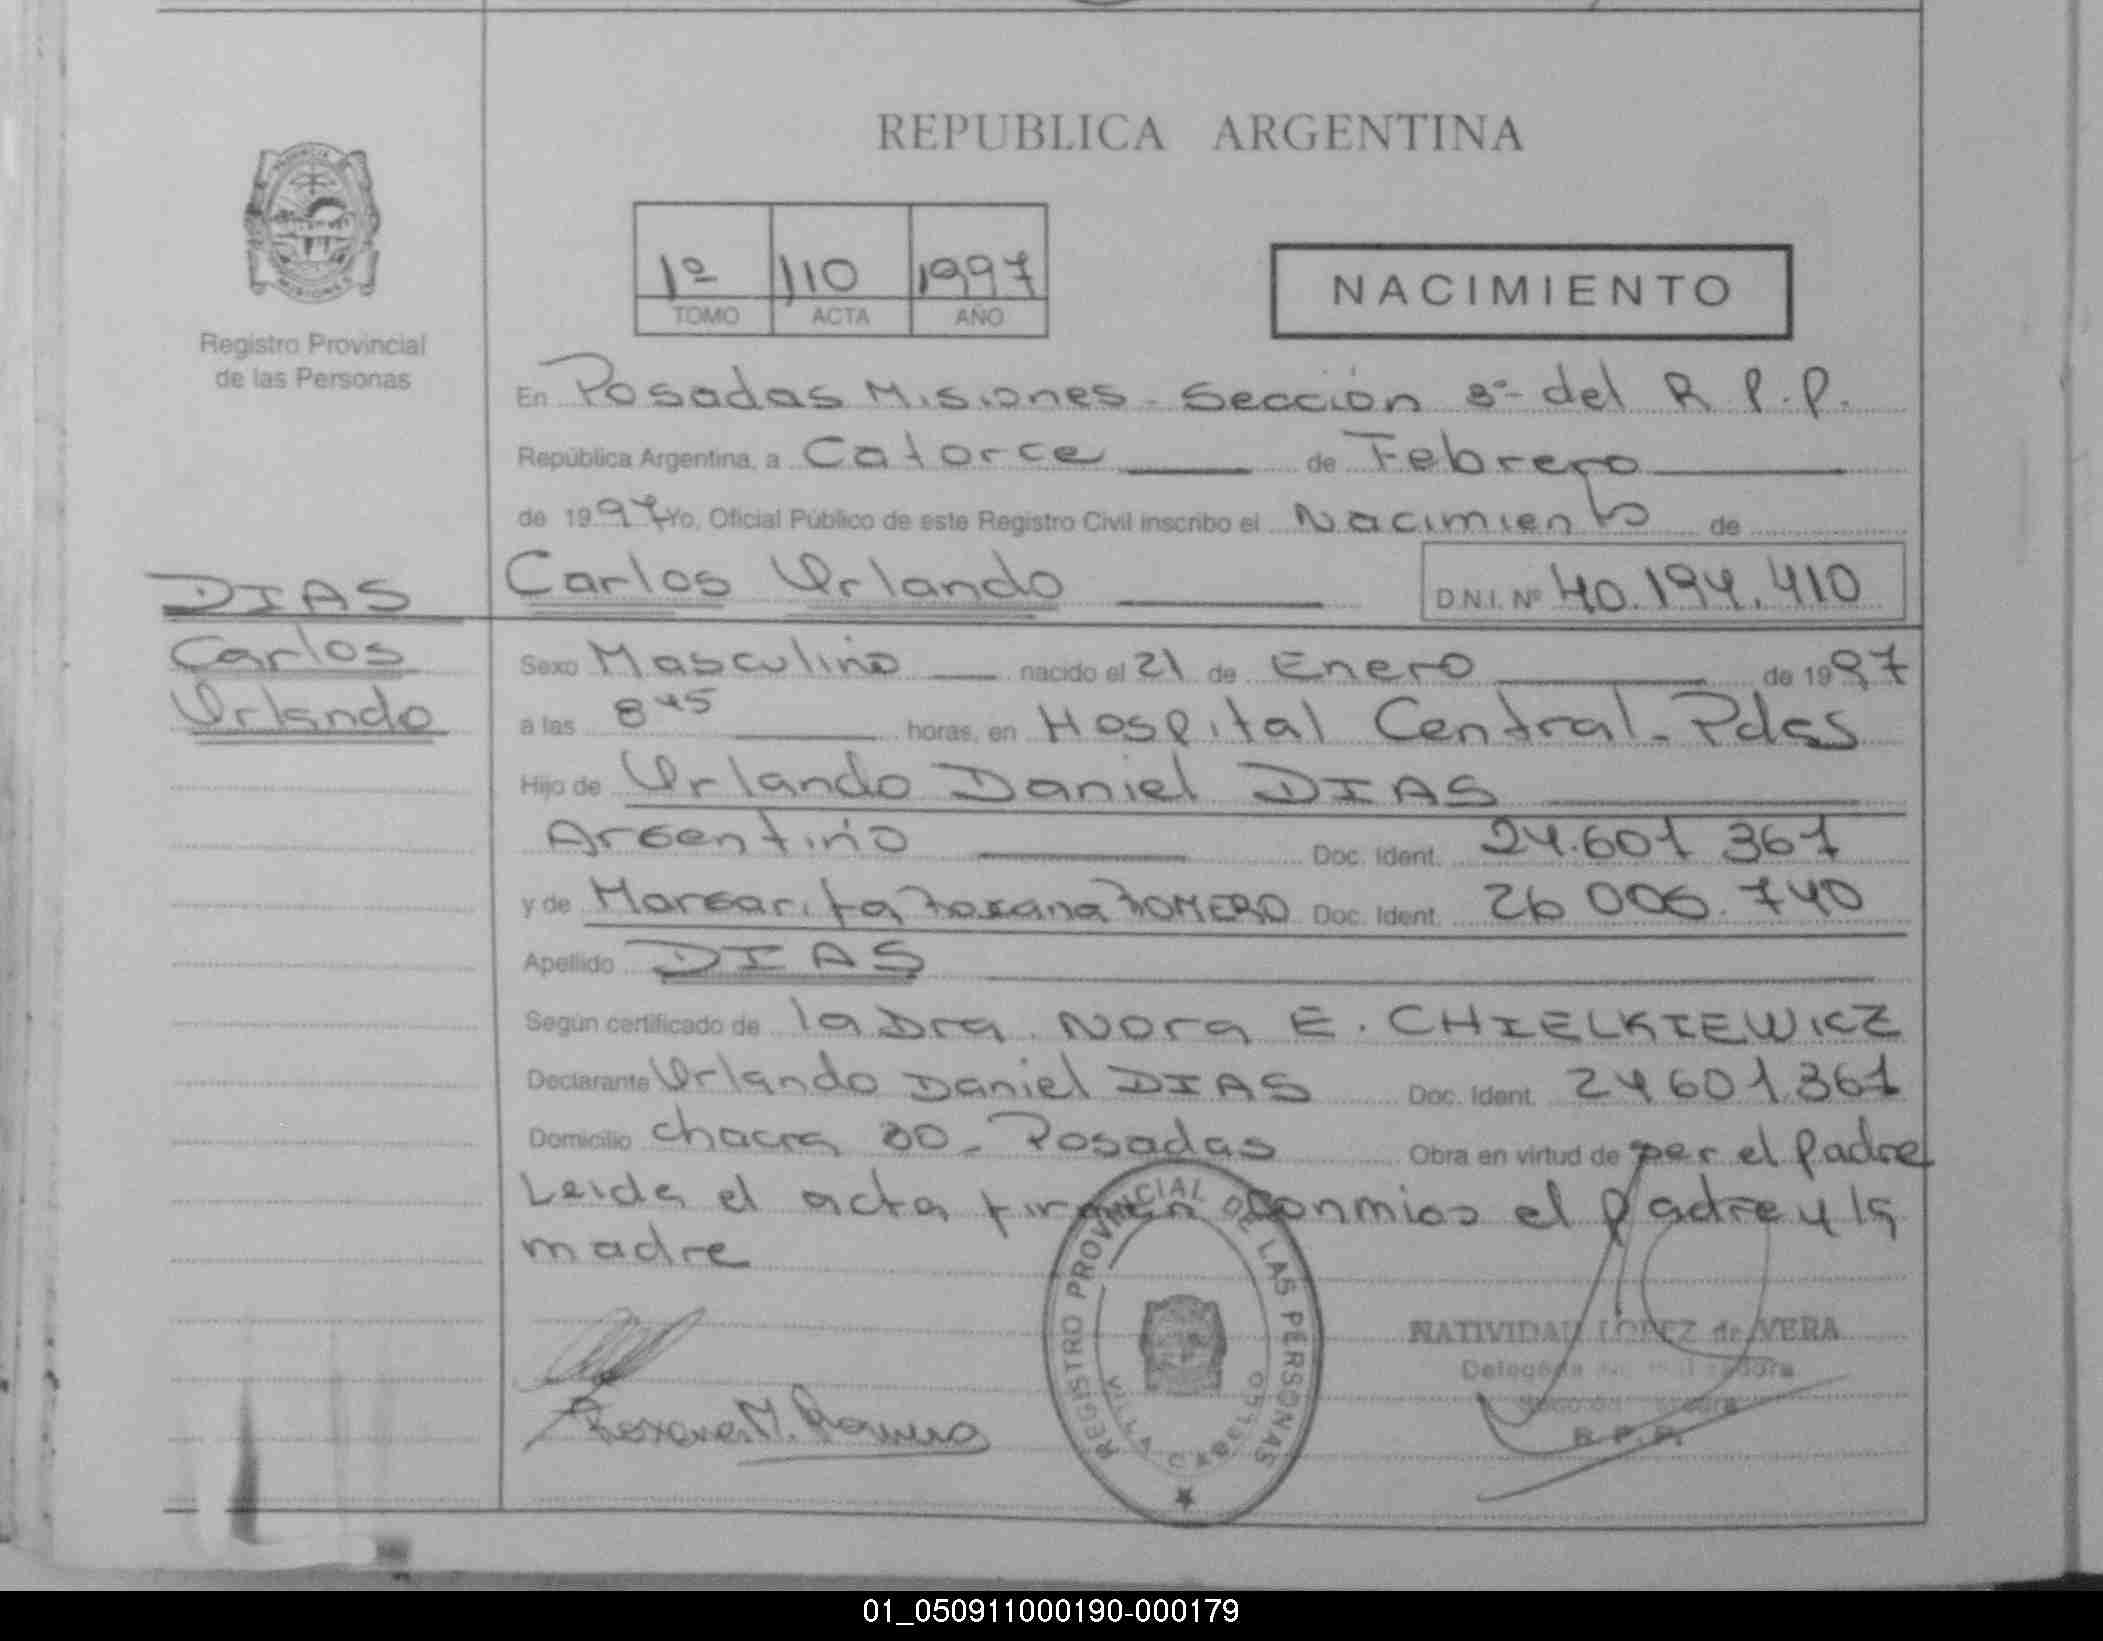 REPUBLICA ARGENTINA
1º 110 1997
TOMO ACTA AÑO
NACIMIENTO
Registro Provincial
de las Personas
En Posadas Misiones - Sección 8º- del R.P.P.
República Argentina, a Catorce de Febrero
de 1997 Yo, Oficial Público de este Registro Civil inscribo el Nacimiento de
DIAS
Carlos
Urlando
Carlos Urlando D.N.I. Nº 40.194.410
Sexo Masculino nacido el 21 de Enero de 1997
a las 8 45 horas, en Hospital Central - Pdas
Hijo de Urlando Daniel DIAS
Argentino Doc. Ident. 24.601 361
y de Margarita Roxana ROMERO Doc. Ident. 26 006.740
Apellido DIAS
Según certificado de la Dra. Nora E. CHIELKIEWICZ
Declarante Urlando Daniel DIAS Doc. Ident. 24 601.361
Domicilio chacra 80 - Posadas Obra en virtud de ser el padre
Leida el acta firman conmigo el padre y la
madre
REGISTRO PROVINCIAL DE LAS PERSONAS
VILLA CABELLO
NATIVIDAD LOPEZ de VERA
R.P.P.
01_050911000190-000179